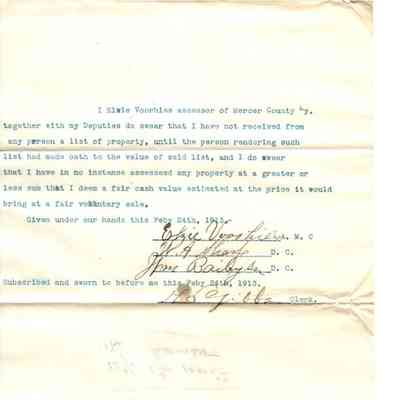 I Elzie Voorhies assessor of Mercer County Ky.
together with my Deputies do swear that I have not received from
any person a list of property, until the person rendering such
list had made oath to the value of said list, and I do swear
that I have in no instance assessed any property at a greater or
less sum that I deem a fair cash value estimated at the price it would
bring at a fair voluntary sale.
Given under our hands this Feby 24th, 1913.
Elzie Voorhies. M. C
W. A. D. C.
Wm Bailey D. C.
Subscribed and sworn to before me this Feby 24th, 1913.
Gibbs Clerk.